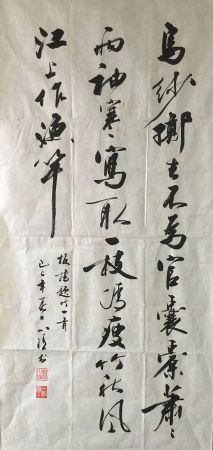 烏紗擲去不為官囊橐蕭〻
兩袖寒寫取一枝清瘦竹秋風
江上作漁竿
板橋題竹一首
年夏日書